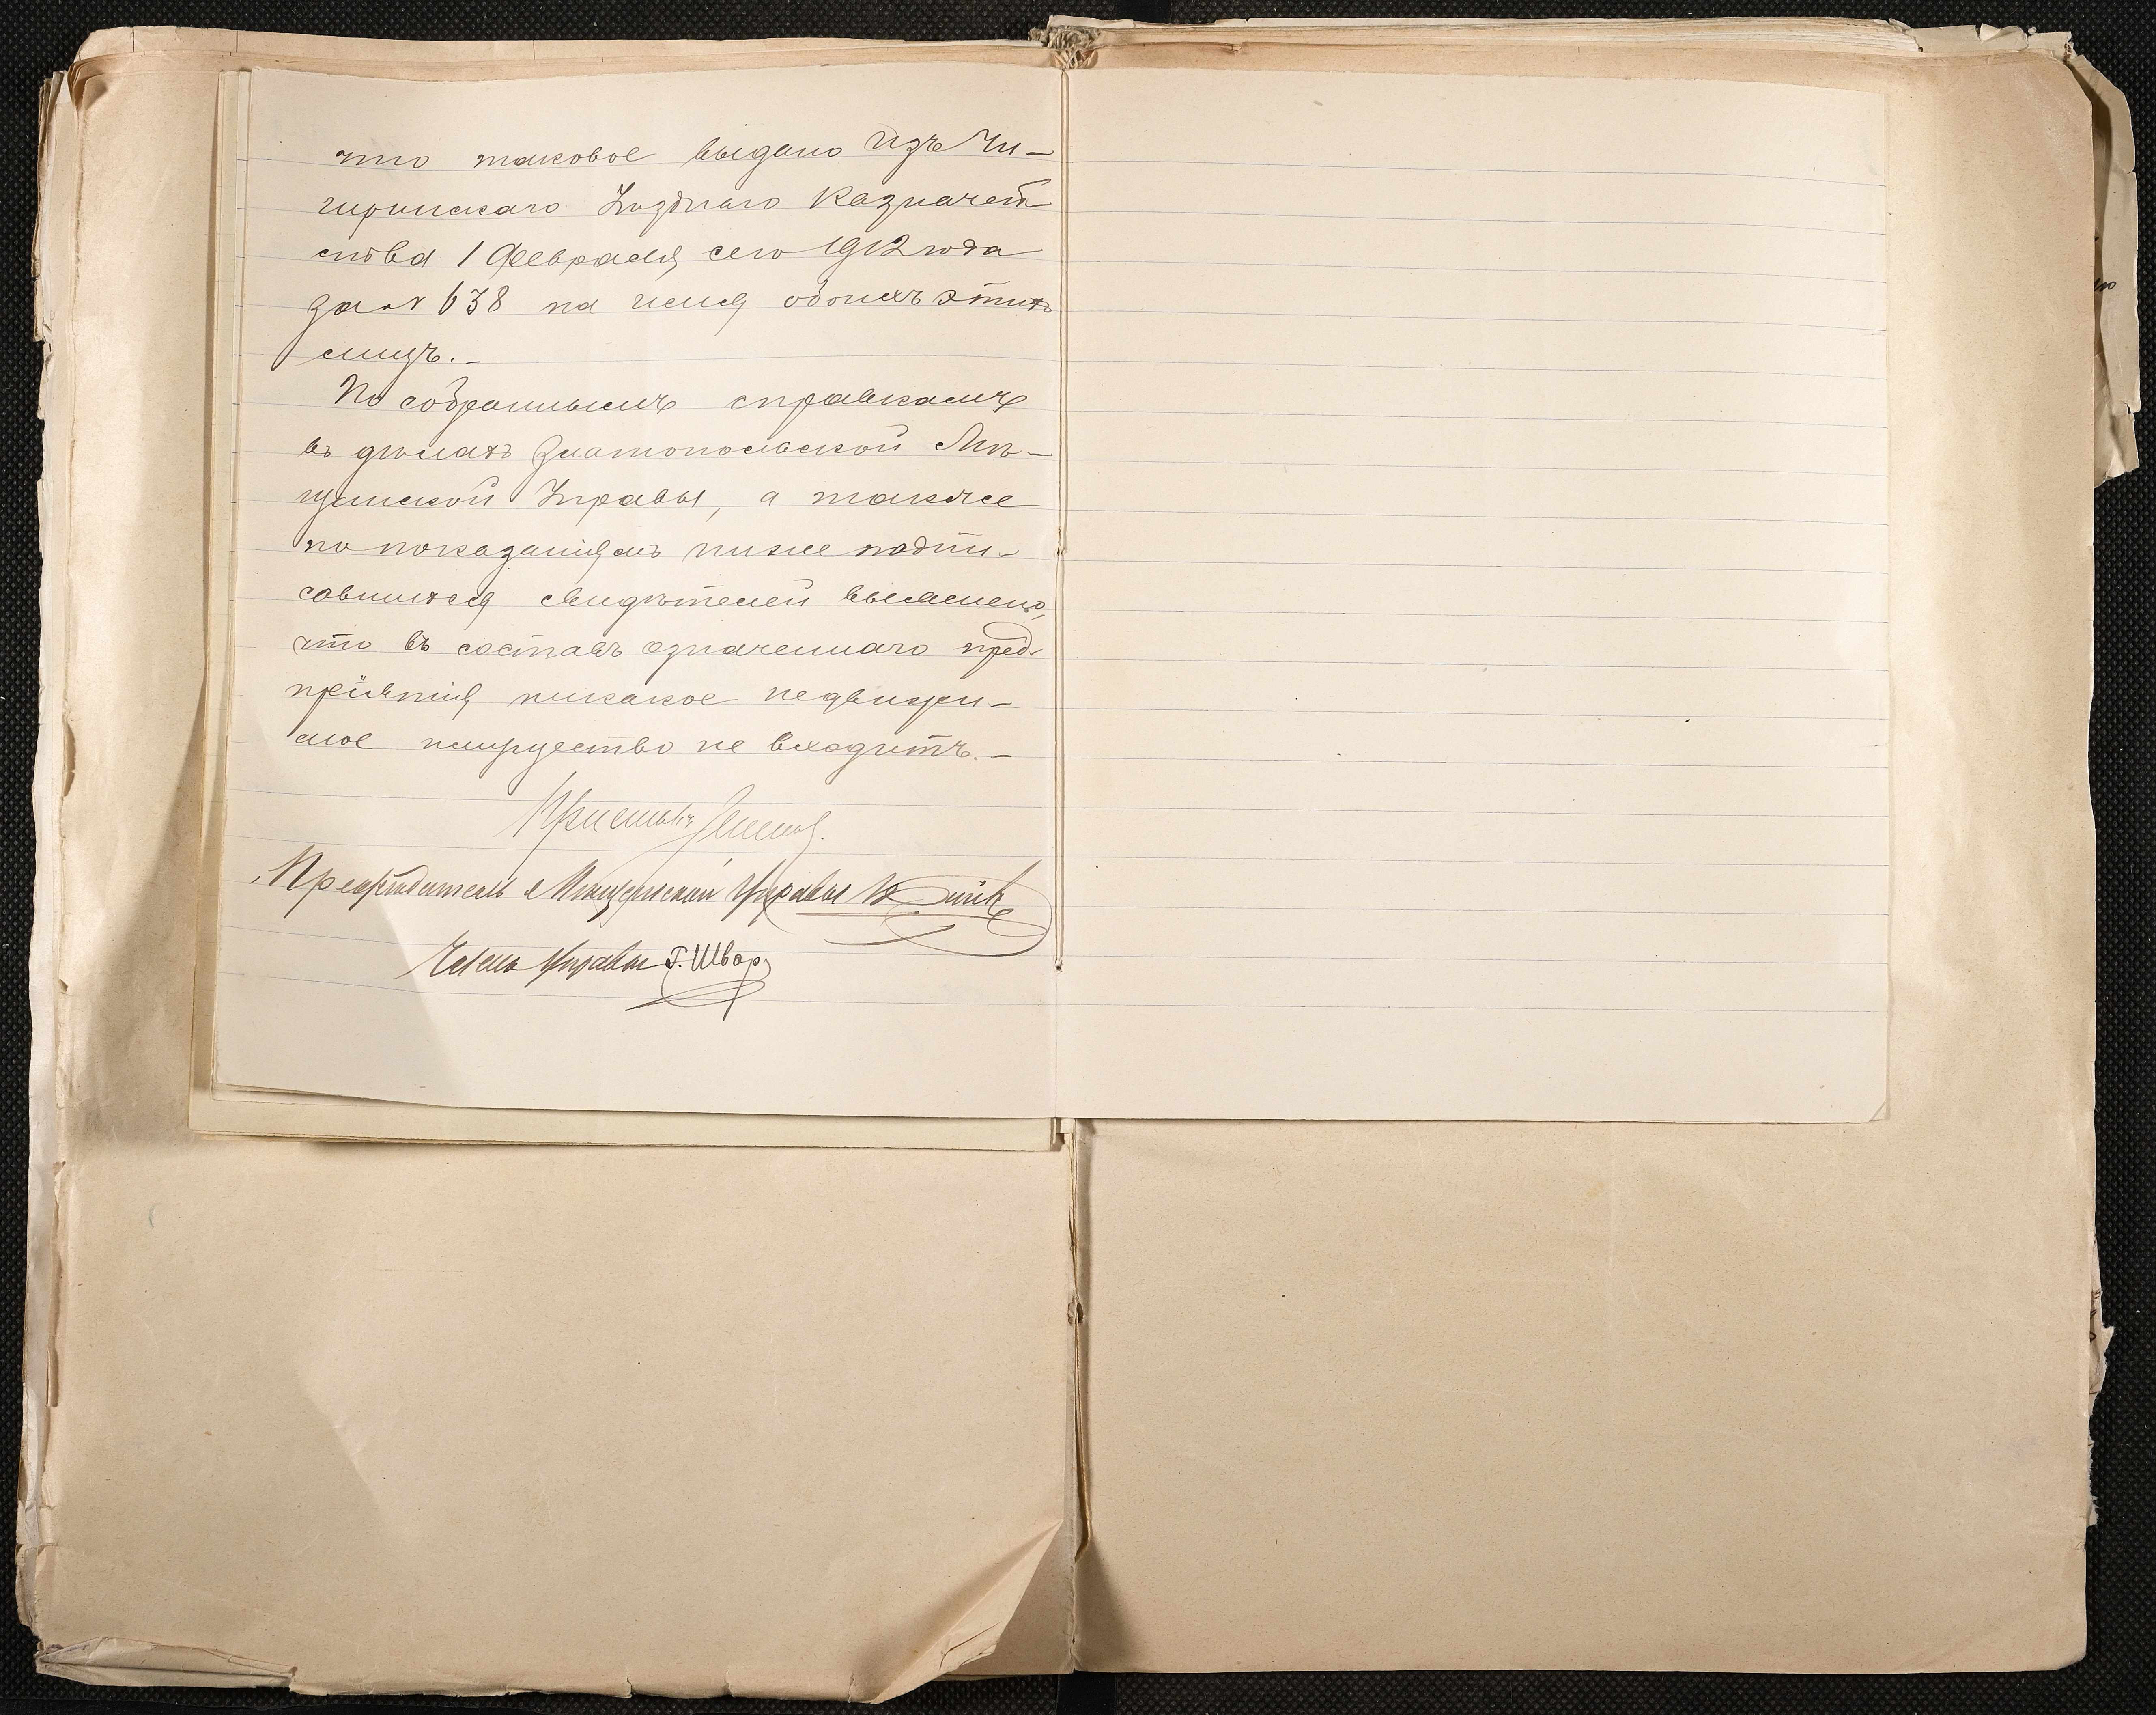 что таковое выдано изъ Чи-
гиринскаго Уѣзднаго Казначей
ства 1 Февраля сего 1912 года
за № 638 на имя обоихъ этихъ
лицъ.-
По собраннымъ справкамъ
въ дѣлахъ Златопольской Мѣ-
щанской Управы, а также
по показаніямъ ниже подпи-
савшихся свидѣтелей выяснено,
что въ составъ означеннаго пред-
пріятія никакое недвижи-
мое имущество не входитъ.-
Предсѣдатель Мѣщанской Управы
Членъ Управы Г. Швар